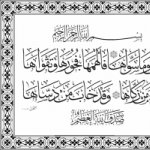 بسم الله الرحمن الرحيم
وما سواها فألهمها فجورها وتقواها
من زكاها وقد خاب من دساها
صدق الله العظيم